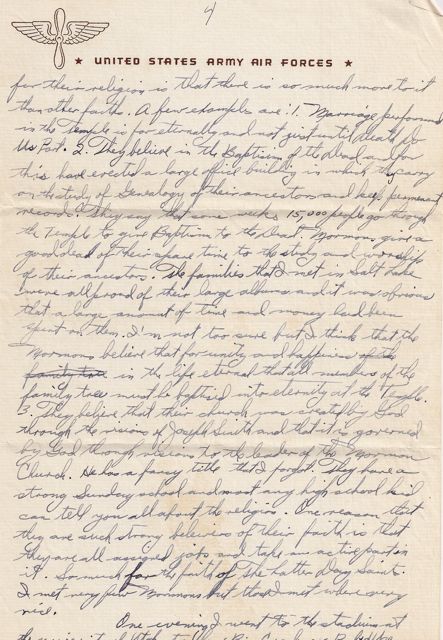 4
★ UNITED STATES ARMY AIR FORCES ★
for their religion is that there is so much more to it
than other faiths. A few examples are: 1. Marriage performed
in the Temple is for eternally and not just until death Do
Us Part. 2. They believe in the Baptism of the Dead and for
this have erected a large office building in which they carry
on the study of Genealogy of their ancestors and keep permanent
record. They say that some weeks 15,000 people go through
the Temple to give Baptism to the Dead. Mormons give a
good deal of their spare time to the study and worship
of their ancestors. The families that I met in Salt Lake
were all proud of their large albums and it was obvious
that a large amount of time and money had been
spent on them. I'm not too sure but I think that the
Mormons believe that for unity and happiness
family tree in the life eternal that all members of the
family tree must be baptised into eternity at the Temple.
3. They believe that their church was created by God
through the visions of Joseph Smith and that it is governed
by God through visions to the leader of the Mormon
Church. He has a fancy title that I forgot. They have a
strong Sunday school and most any high school kid
can tell you all about the religion. One reason that
they are such strong believers of their faith is that
they are all assigned jobs and take an active part in
it. So much for the faith of The Latter Day Saints.
I met very few Mormons but those I met where very
nice.
One evening I went to the stadium at
the